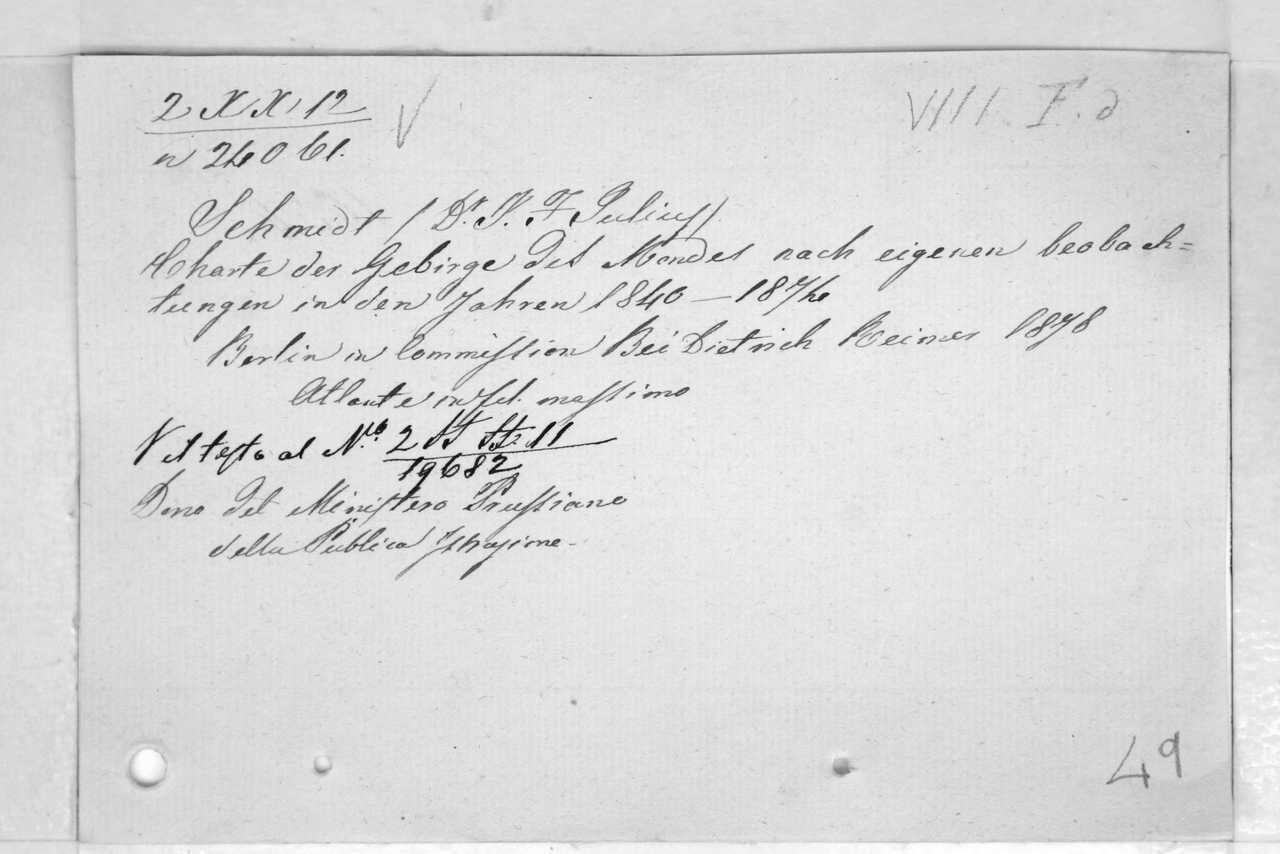 2 X X 12 V VIII. F. d
n 24061.
Schmidt (Dr. J. F. Julius)
Charte der Gebirge des Mondes nach eigenen beobach=
tungen in den Jahren 1840 — 1874
Berlin in Commission Bei Dietrich Reimer 1878
Atlante in fol. massimo
V il testo al No. 2 11
19682
Dono del Ministero Prussiano
della Publica Istrazione -
49